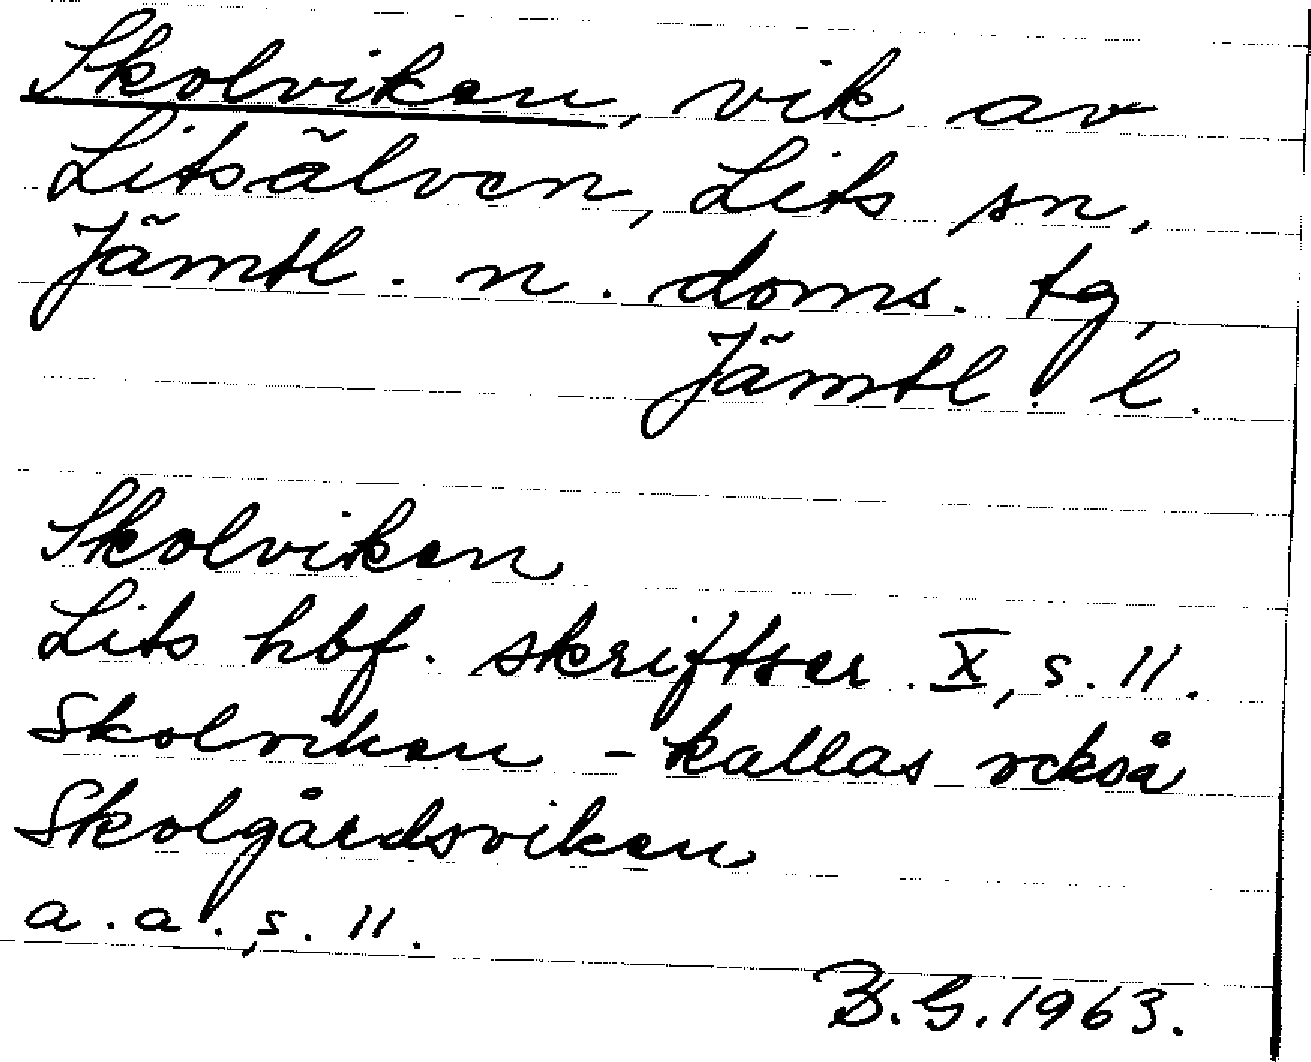 Skolviken, vik av
Litsälven, Lits sn,
Jämtl. n. doms. tg,
Jämtl. l.
Skolviken
Lits hbf. skriftser. X, s. 11.
Skolviken - kallas också
Skolgårdsviken
a.a., s. 11.
B.G. 1963.